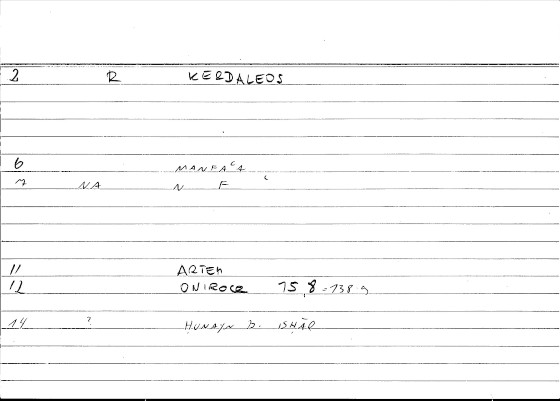 2 R KERDALEOS
6 MANFA'A
7 NA N F
11 ARTEM
12 ONIROCR 15,8 = 138,9
14 ? HUNAYN B. ISHĀQ